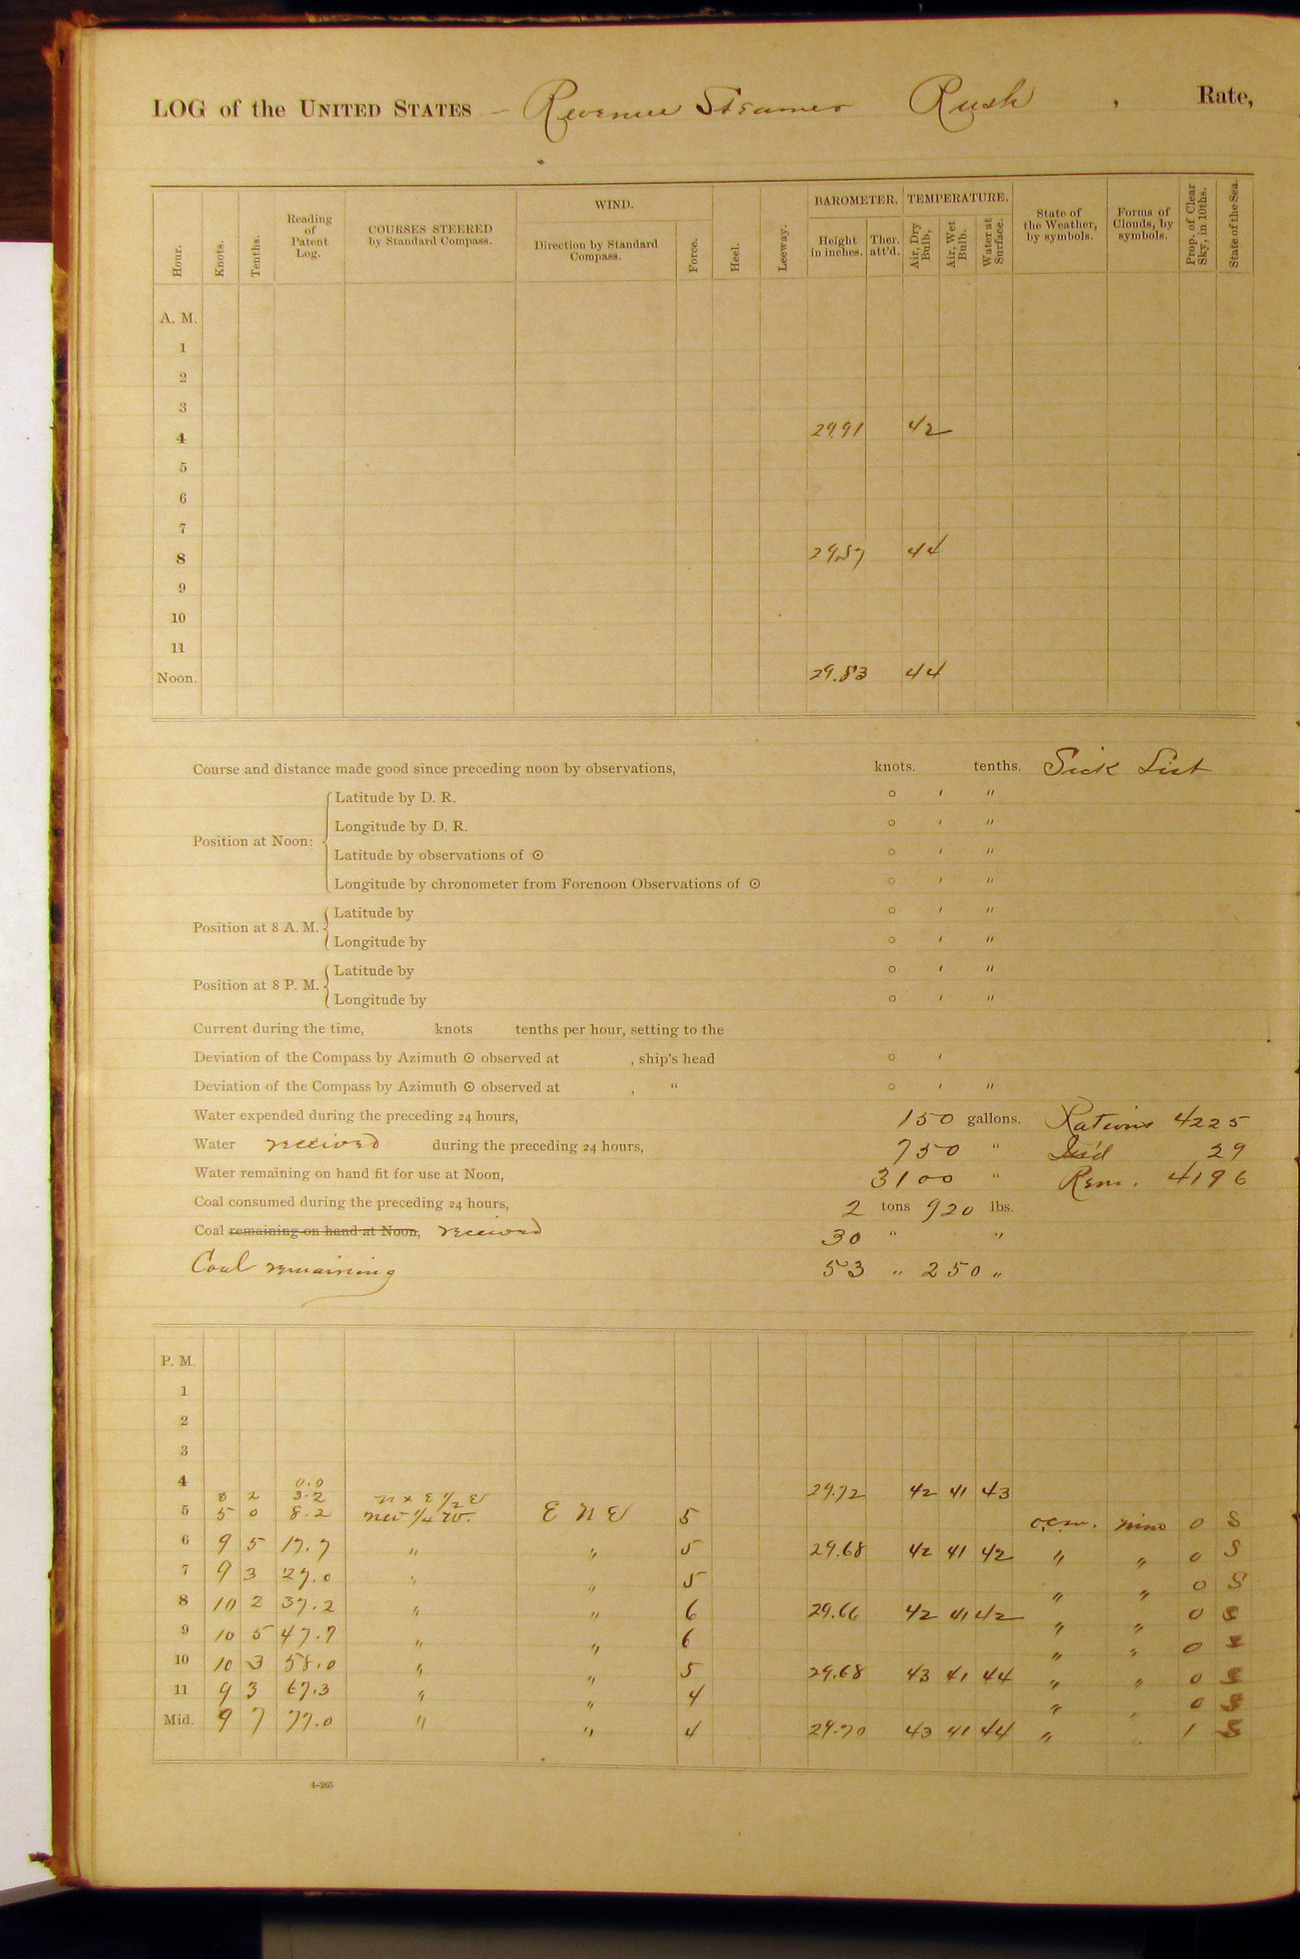 LOG of the UNITED STATES – Revenue Steamer Rush , Rate,
Hour. Knots. Tenths. Reading of Patent Log. COURSES STEERED by Standard Compass. WIND. Direction by Standard Compass. Force. Heel. Leeway. BAROMETER. Height in inches. Ther. att'd. TEMPERATURE. Air, Dry Bulb, Air, Wet Bulb. Water at Surface. State of the Weather, by symbols. Forms of Clouds, by symbols. Prop. of Clear Sky, in 10ths. State of the Sea.
A. M.
1
2
3
4 29.91 42
5
6
7
8 29.87 44
9
10
11
Noon. 29.83 44
Course and distance made good since preceding noon by observations, knots. tenths. Sick List
Position at Noon: Latitude by D. R. ° ′ ″
Longitude by D. R. ° ′ ″
Latitude by observations of ☉ ° ′ ″
Longitude by chronometer from Forenoon Observations of ☉ ° ′ ″
Position at 8 A. M. Latitude by ° ′ ″
Longitude by ° ′ ″
Position at 8 P. M. Latitude by ° ′ ″
Longitude by ° ′ ″
Current during the time, knots tenths per hour, setting to the
Deviation of the Compass by Azimuth ☉ observed at , ship's head ° ′
Deviation of the Compass by Azimuth ☉ observed at , " ° ′ ″
Water expended during the preceding 24 hours, 150 gallons. Rations 4225
Water received during the preceding 24 hours, 750 " Iss'd 29
Water remaining on hand fit for use at Noon, 3100 " Rem. 4196
Coal consumed during the preceding 24 hours, 2 tons 920 lbs.
Coal remaining on hand at Noon, received 30 " "
Coal remaining 53 " 250 "
P. M.
1
2
3
4 0.0 29.72 42 41 43
3 2 3.2 N x E 1/2 E
5 5 0 8.2 NW 1/4 W. E N E 5 o.c.m. nim 0 S
6 9 5 17.7 " " 5 29.68 42 41 42 " " 0 S
7 9 3 27.0 " " 5 " " 0 S
8 10 2 37.2 " " 6 29.66 42 41 42 " " 0 S
9 10 5 47.7 " " 6 " " 0 S
10 10 3 58.0 " " 5 29.68 43 41 44 " " 0 S
11 9 3 67.3 " " 4 " " 0 S
Mid. 9 7 77.0 " " 4 29.70 43 41 44 " " 1 S
4–265